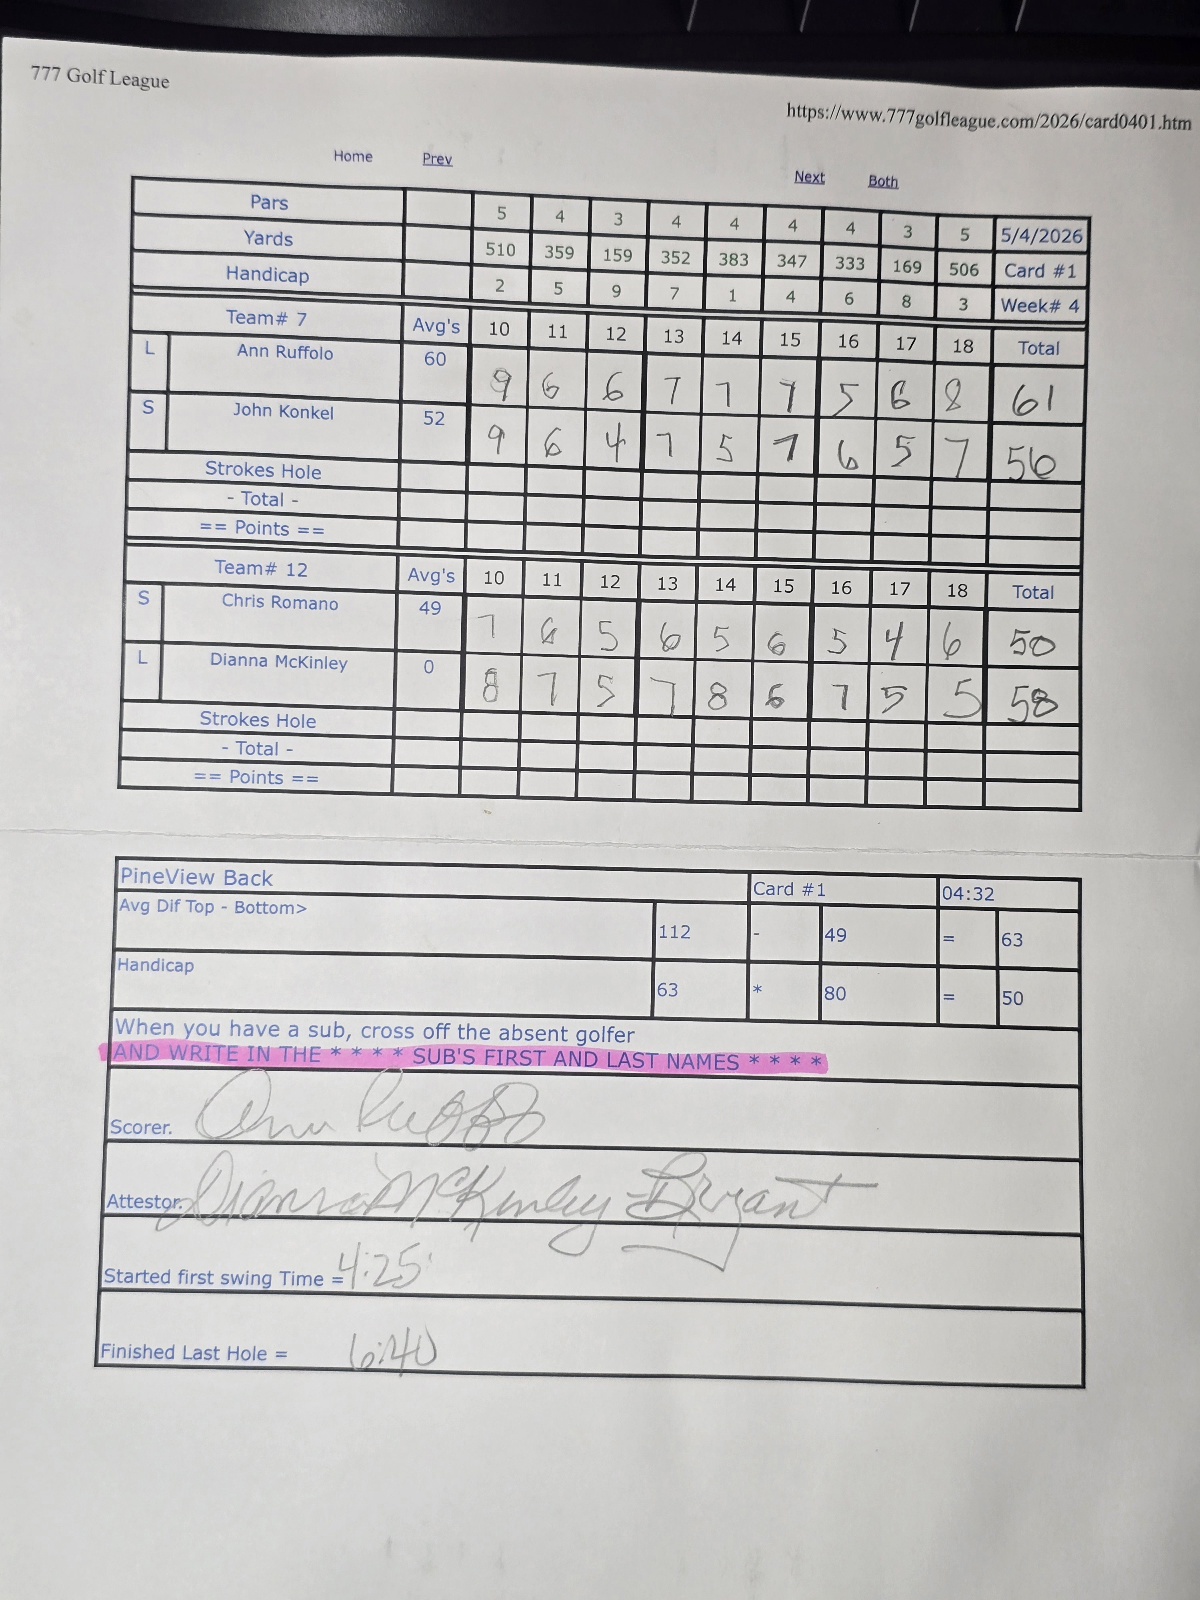 777 Golf League
https://www.777golfleague.com/2026/card0401.htm
Home Prev Next Both
Pars 5 4 3 4 4 4 4 3 5 5/4/2026
Yards 510 359 159 352 383 347 333 169 506 Card #1
Handicap 2 5 9 7 1 4 6 8 3 Week# 4
Team# 7 Avg's 10 11 12 13 14 15 16 17 18 Total
L Ann Ruffolo 60 9 6 6 7 7 7 5 6 8 61
S John Konkel 52 9 6 4 7 5 7 6 5 7 56
Strokes Hole
- Total -
== Points ==
Team# 12 Avg's 10 11 12 13 14 15 16 17 18 Total
S Chris Romano 49 7 6 5 6 5 6 5 4 6 50
L Dianna McKinley 0 8 7 5 7 8 6 7 5 5 58
Strokes Hole
- Total -
== Points ==
PineView Back Card #1 04:32
Avg Dif Top - Bottom> 112 - 49 = 63
Handicap 63 * 80 = 50
When you have a sub, cross off the absent golfer
AND WRITE IN THE * * * * SUB'S FIRST AND LAST NAMES * * * *
Scorer. Ann Ruffolo
Attestor. Dianna McKinley-Bryant
Started first swing Time = 4:25
Finished Last Hole = 6:40